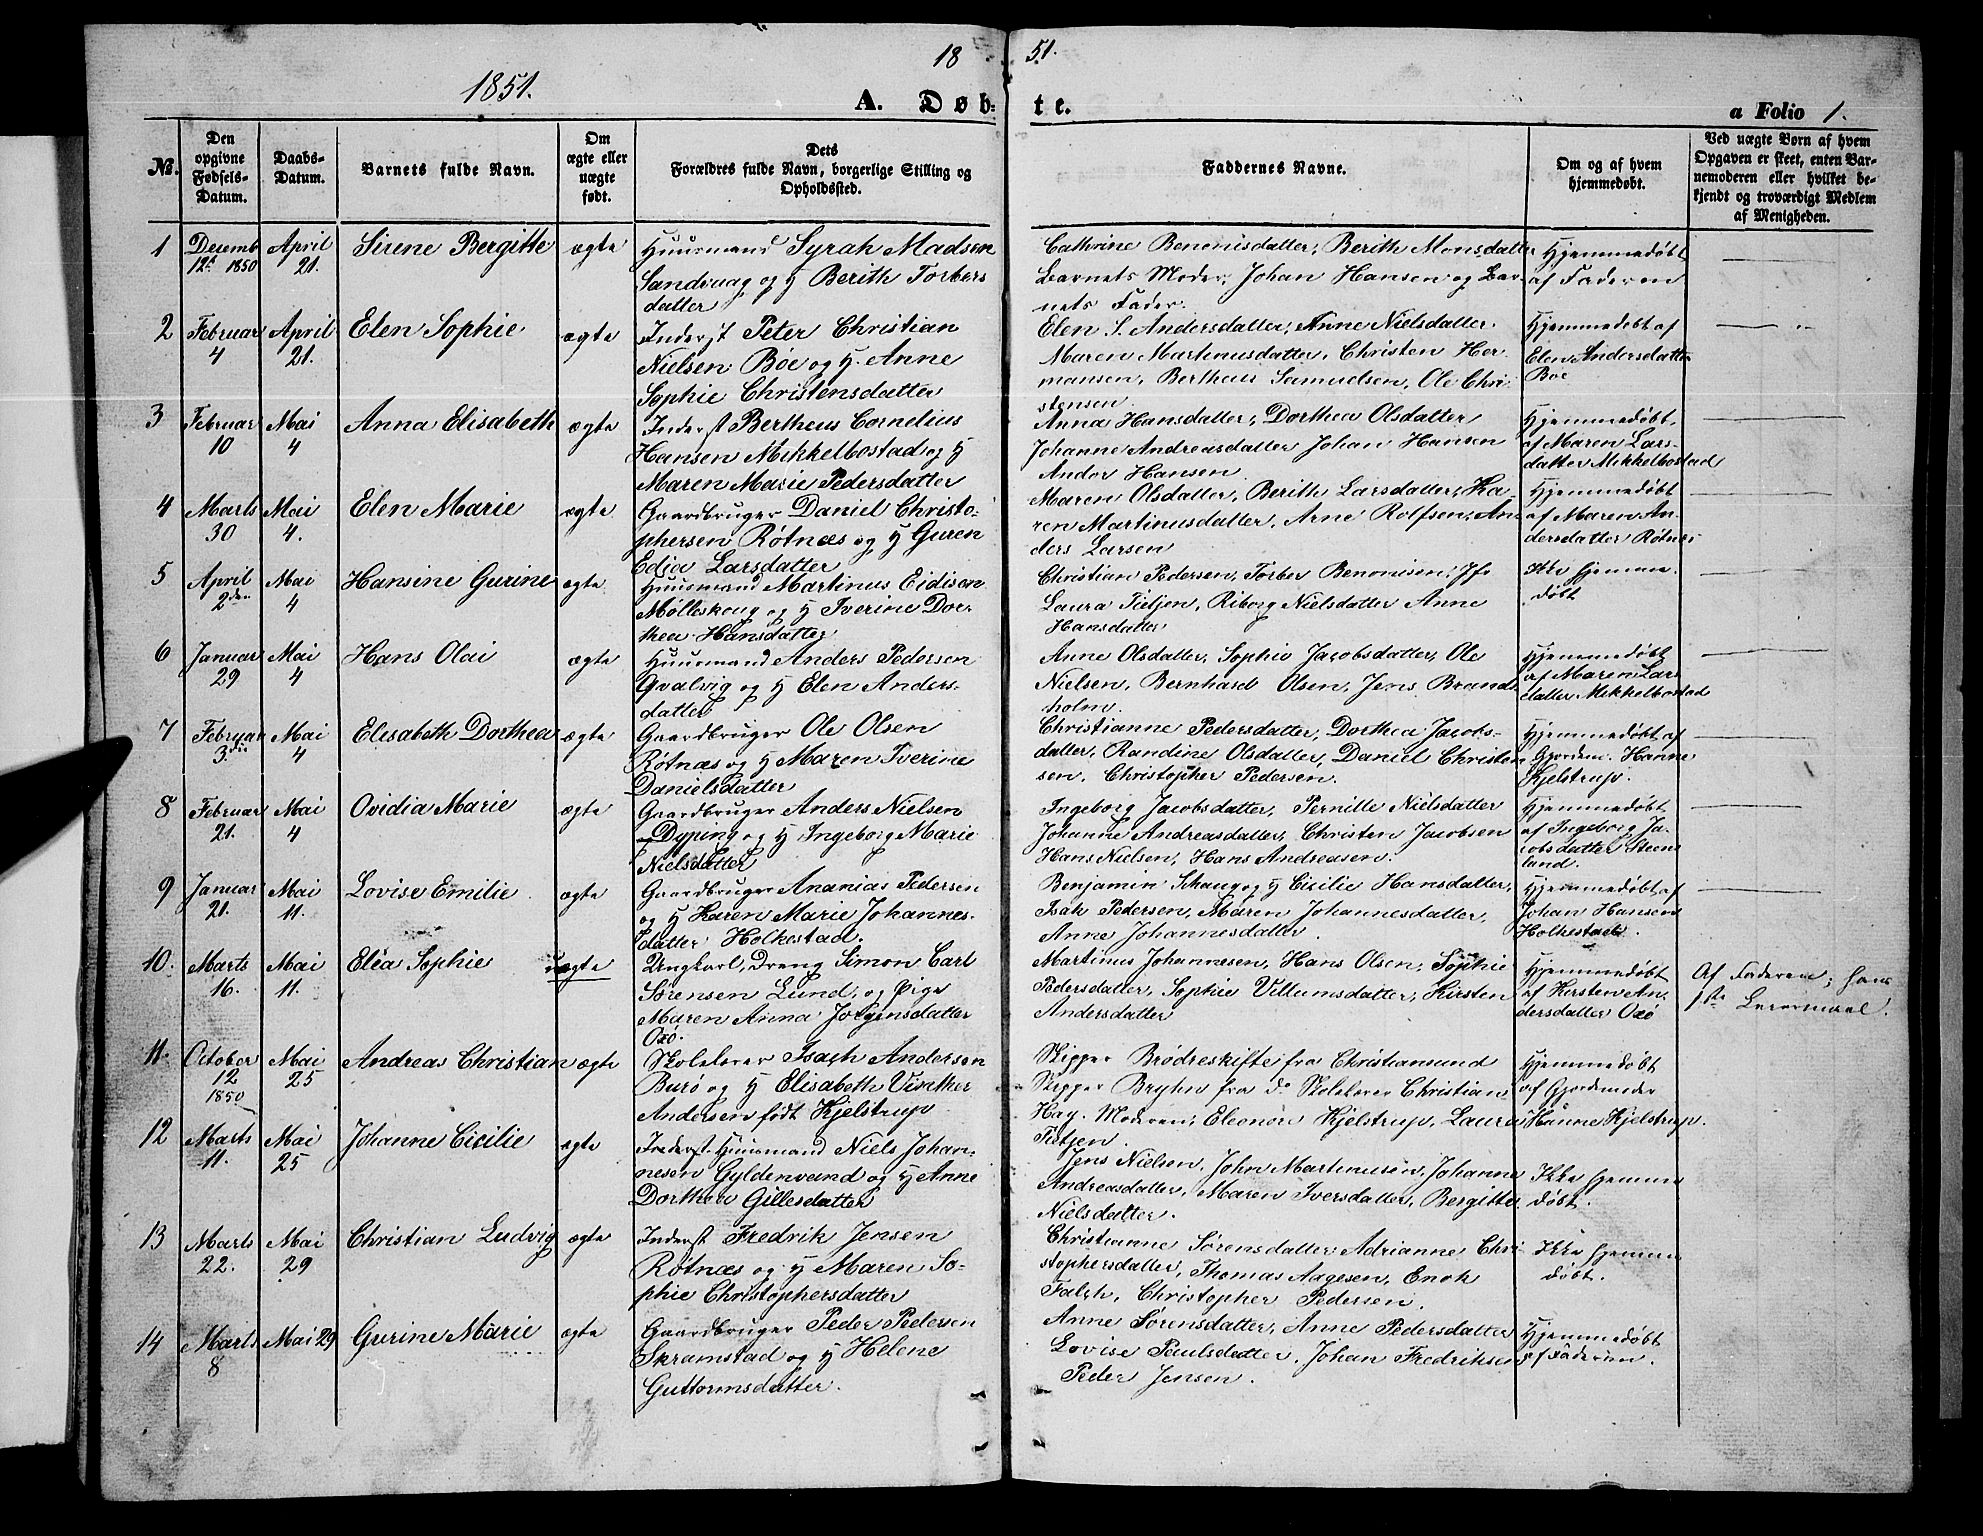 18 51.
1851.
A. Døb- te.
a Folio 1.
No.
Den opgivne Fødsels-Datum.
Daabs-Datum.
Barnets fulde Navn.
Om ægte eller uægte født.
Dets Forældres fulde Navn, borgerlige Stilling og Opholdssted.
Faddernes Navne.
Om og af hvem hjemmedøbt.
Ved uægte Børn af hvem Opgaven er skeet, enten Barnemoderen eller hvilket bekjendt og troværdigt Medlem af Menigheden.
1 Desemb 12te 1850 April 21. Sirene Bergitte ægte
Huusmand Syrah Madsen
Sandvaag og H Berith Torbers
datter
Cathrine Benonisdatter, Berith Monsdatter
Barnets Moder, Johan Hansen og Bar-
nets Fader.
Hjemmedøbt
af Faderen
2 Februar 4 April 21. Elen Sophie ægte
Inderst Peter Christian
Nielsen Bøe og H. Anne
Sophie Christensdatter
Elen S. Andersdatter, Anne Nielsdatter.
Maren Martinusdatter, Christen Her-
mansen, Bertheus Samuelsen, Ole Chri-
stensen
Hjemmedøbt af
Elen Andersdatter
Bøe
3 Februar 10 Mai 4 Anna Elisabeth ægte
Inderst Bertheus Cornelius
Hansen Mikkelbostad og H
Maren Marie Pedersdatter
Anna Hansdatter, Dorthea Olsdatter
Johanne Andreasdatter Johan Hansen
Andor Hansen
Hjemmedøbt
af Maren Lars-
datter Mikkelbostad
4 Marts 30 Mai 4. Elen Marie ægte
Gaardbruger Daniel Christo-
phersen Røtnæs og H Guren
Edia Larsdatter
Maren Olsdatter, Berith Larsdatter, Ka-
ren Martinusdatter, Arne Rolfsen, An-
ders Larsen
Hjemmedøbt
af Maren An-
dersdatter Røtnæs
5 April 2den Mai 4 Hansine Gurine ægte
Huusmand Martinus Eidisen
Mølleskoug og H Iverine Dor-
thea Hansdatter
Christian Pedersen, Torber Benonisen, Jfr
Laura Tietjen, Riborg Nielsdatter Anne
Hansdatter
Ikke hjemme-
døbt
6 Januar 29 Mai 4 Hans Olai ægte
Huusmand Anders Pedersen
Gvalvig og H Elen Anders-
datter
Anne Olsdatter, Sophie Jacobsdatter, Ole
Nielsen, Bernhard Olsen, Jens Brand-
holm.
Hjemmedøbt
af Maren Lars
datter Mikkelbostad
7 Februar 3die Mai 4 Elisabeth Dorthea ægte
Gaardbruger Ole Olsen
Røtnæs og H Maren Iverine
Danielsdatter
Christianne Pedersdatter, Dorthea Jacobs-
datter, Randine Olsdatter, Daniel Christen
sen, Christopher Pedersen.
Hjemmedøbt af
Gjordem. Hanne
Kjelstrup.
8 Februar 21. Mai 4 Ovidia Marie ægte
Gaardbruger Anders Nielsen
Dyping og H Ingeborg Marie
Nielsdatter
Ingeborg Jacobsdatter, Pernille Nielsdatter
Johanne Andreasdatter, Christen Jacobsen
Hans Nielsen, Hans Andreasen.
Hjemmedøbt
af Ingeborg Ja-
cobsdatter Steens
land.
9 Januar 21. Mai 11. Lovise Emilie ægte
Gaardbruger Ananias Pedersen
og H Karen Marie Johannes-
datter Holkestad.
Benjamin Schaug og H Cicilie Hansdatter,
Isak Pedersen, Maren Johannesdatter,
Anne Johannesdatter.
Hjemmedøbt af
Johan Hansen
Holkestad.
10. Marts 16. Mai 11. Eléa Sophie uægte
Ungkarl, Dreng Simon Carl
Sørensen Lund, og Pige
Maren Anna Jorgensdatter
Oxø.
Martinus Johannesen, Hans Olsen, Sophie
Pedersdatter, Sophie Villumsdatter, Kirsten
Andersdatter
Hjemmedøbt
af Kirsten An-
dersdatter Oxø
Af Faderen; hans
1ste Leiermaal.
11. October 12 1850 Mai 25 Andreas Christian ægte
Skolelærer Isach Andersen
Burø og H Elisabeth Vinther
Andersen født Kjelstrup.
Skipper Brødreskifte fra Christiansund
Skipper Bryhn fra do Skolelærer Christian
Hay. Moderen, Eleonora Kjelstrup, Laura
Tietjen.
Hjemmedøbt
af Gjordemoder
Hanne Kjelstrup.
12 Marts 11. Mai 25 Johanne Cicilie ægte
Inderst Huusmand Niels Johan-
nesen Gyldenvand og H Anne
Dorthea Gillesdatter
Jens Nielsen, John Martinusen, Johanne
Andreasdatter, Maren Iversdatter, Bergitte
Nielsdatter.
Ikke hjemme
døbt.
13 Marts 22. Mai 29 Christian Ludvig ægte
Inderst Fredrik Jensen
Røtnæs og H Maren So-
phie Christophersdatter
Christianne Sørensdatter Adrianne Chri-
stophersdatter, Thomas Aagesen, Enok
Falch, Christopher Pedersen.
Ikke hjemme
døbt.
14 Marts 8 Mai 29 Gurine Marie ægte
Gaardbruger Peder Pedersen
Skramstad og H Helene
Guttormsdatter.
Anne Sørensdatter, Anne Pedersdatter
Lovise Paulsdatter, Johan Fredriksen
Peder Jensen.
Hjemmedøbt
af Faderen.